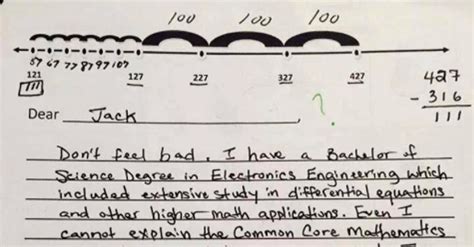 100 100 100
57 67 77 87 97 107
121 127 227 327 427
111
427
- 316
111
Dear Jack ,
?
Don't feel bad. I have a Bachelor of
Science Degree in Electronics Engineering which
included extensive study in differential equations
and other higher math applications. Even I
cannot explain the Common Core Mathematics